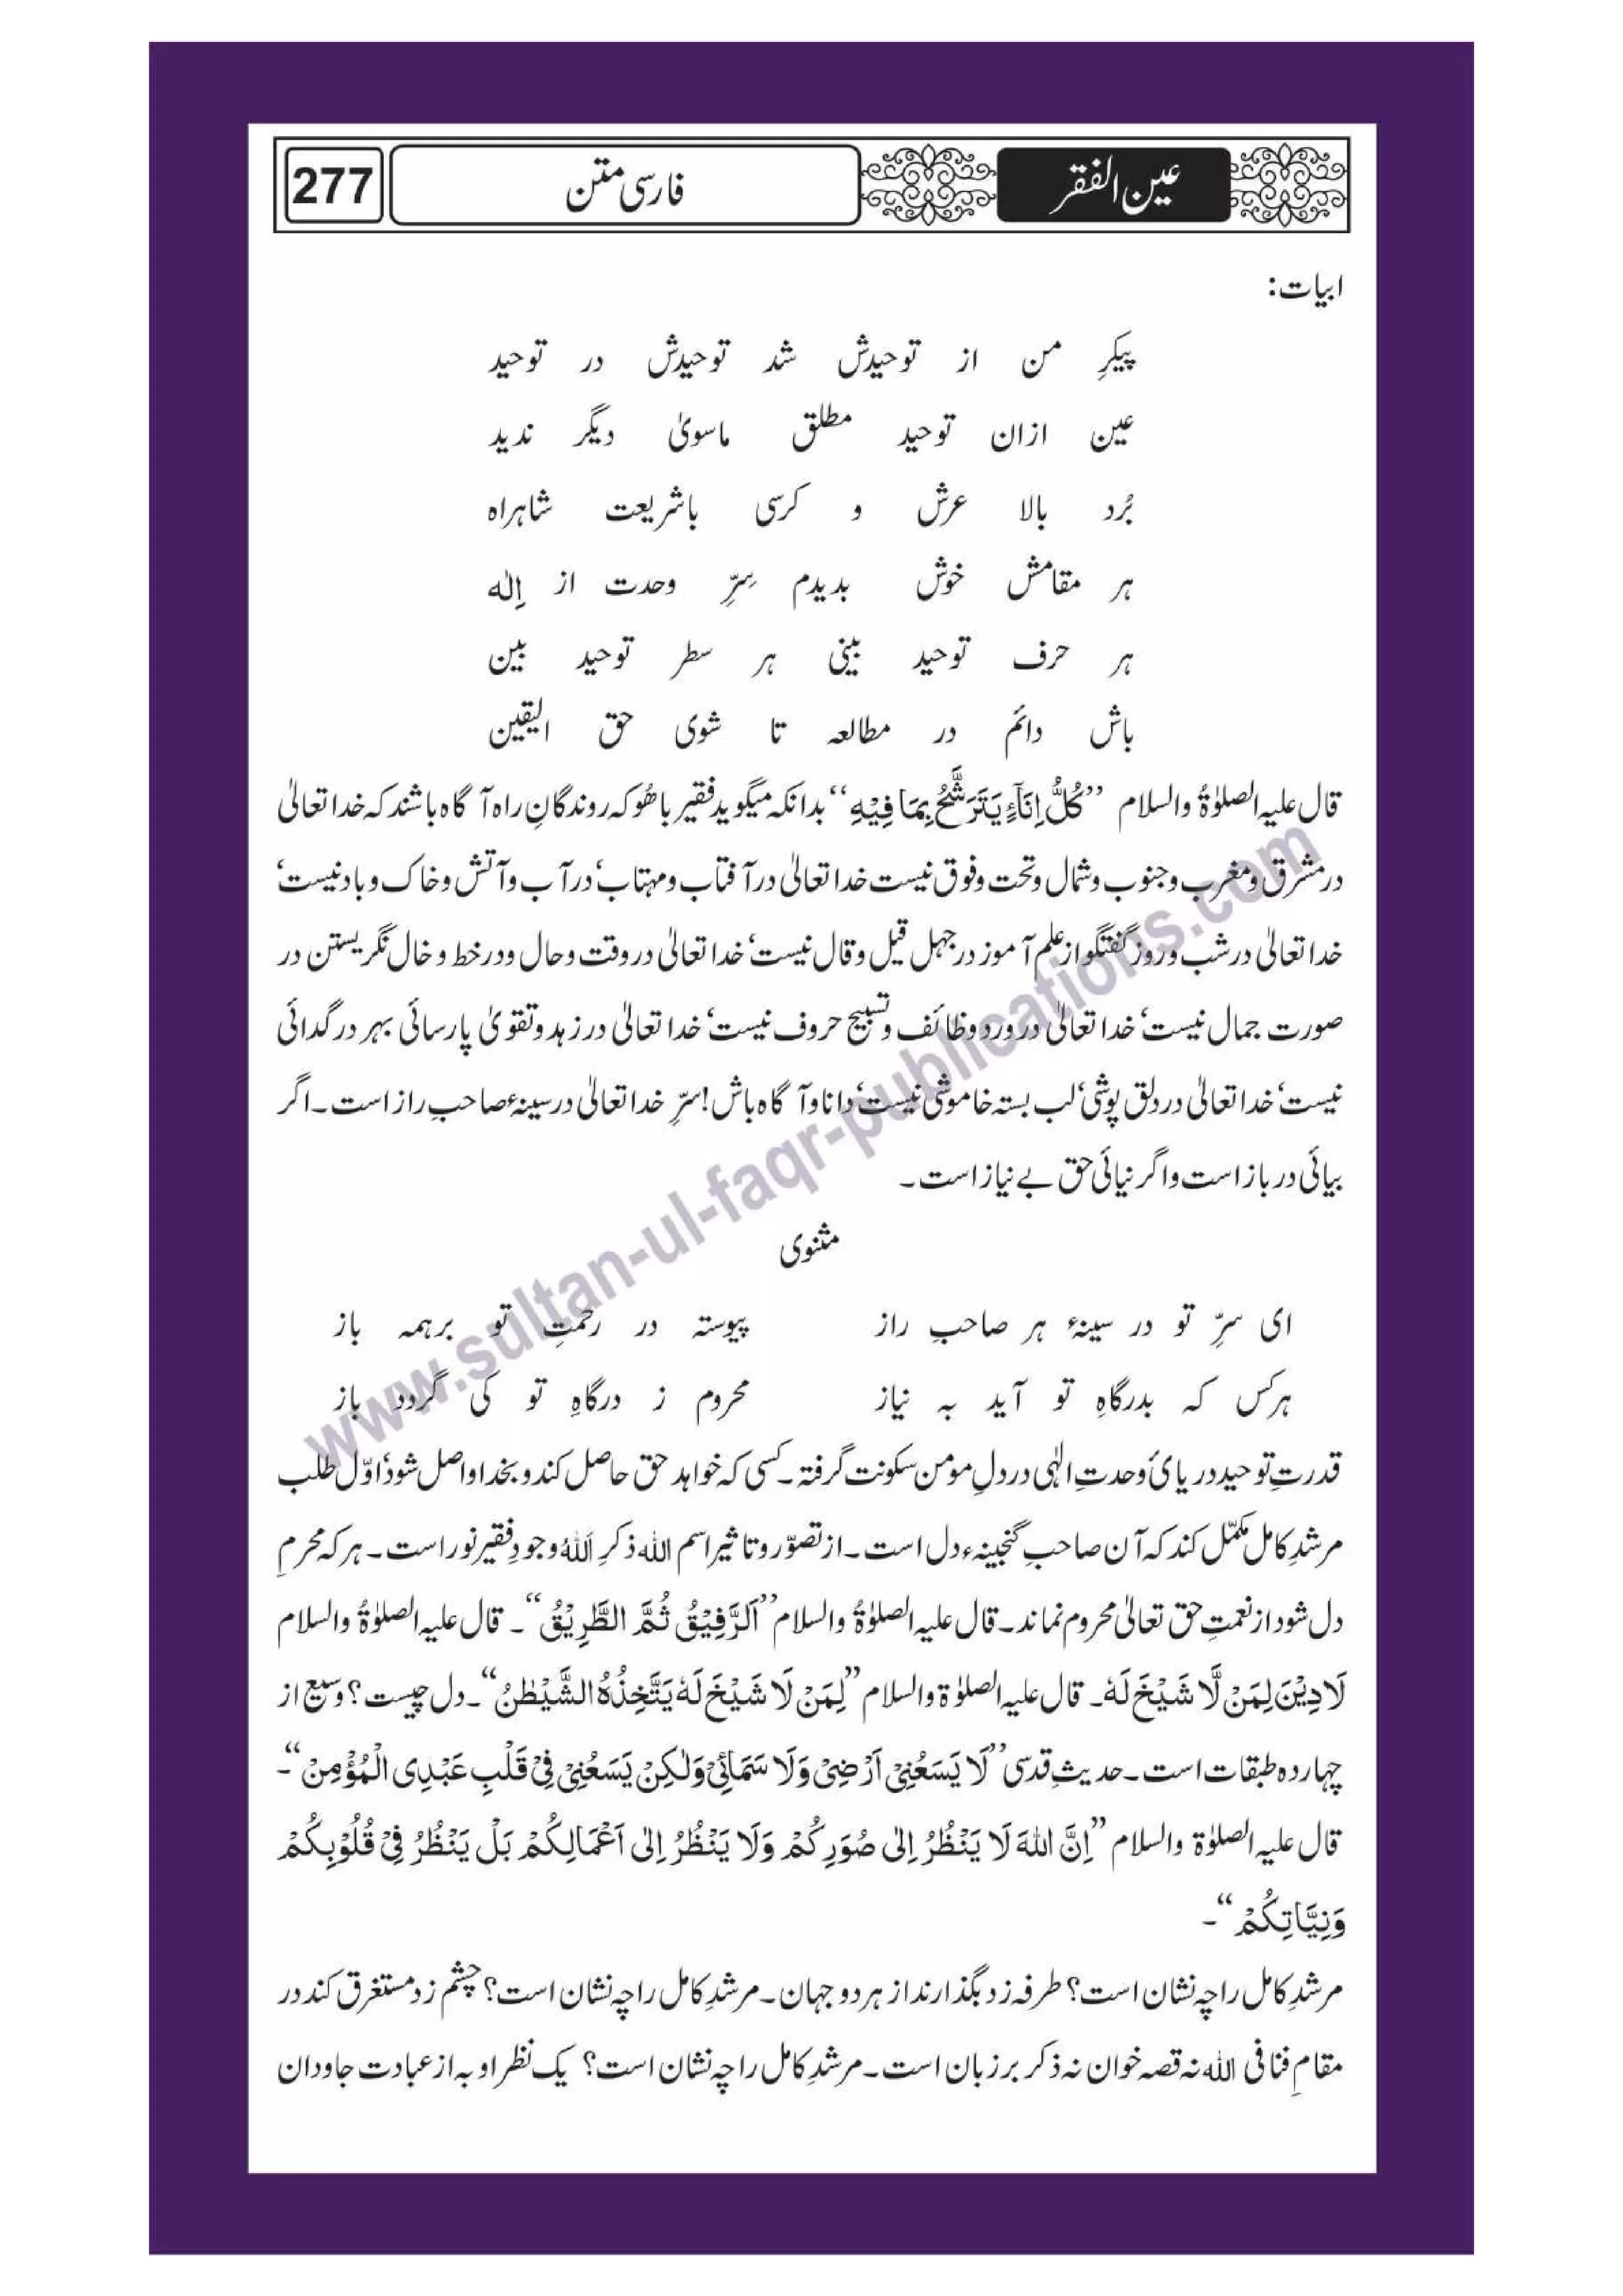 عین الفقر
فارسی متن
277
ابیات:
پیکرِ من از توحیدش شد توحیدش در توحید
عین ازان توحید مطلق ماسویٰ دیگر ندید
بُرد بالا عرش و کرسی باشریعت شاہراہ
ہر مقامش خوش بدیدم سِرِّ وحدت از اِلٰہ
ہر حرف توحید بینی ہر سطر توحید بین
باش دائم در مطالعہ تا شوی حق الیقین
قال علیہ الصلوٰۃُ والسلام ’’کُلُّ اِنَآءٍ یَتَرَشَّحُ بِمَا فِیْہِ‘‘ بدانکہ میگوید فقیر باھُو کہ روندگانِ راہ آگاہ باشند کہ خدا تعالیٰ
در مشرق و مغرب و جنوب و شمال و تحت و فوق نیست خدا تعالیٰ در آفتاب و مہتاب‘ در آب و آتش و خاک و باد نیست‘
خدا تعالیٰ در شب و روز گفتگو از علم آموز در جہل قیل و قال نیست‘ خدا تعالیٰ در وقت و حال و در خط و خال نگریستن در
صورت جمال نیست‘ خدا تعالیٰ در ورد و ظائف و تسبیح حروف نیست‘ خدا تعالیٰ در زہد و تقویٰ پارسائی بہر در گدائی
نیست‘ خدا تعالیٰ در دلق پوشی‘ لب بستہ خاموشی نیست‘ دانا و آگاہ باش! سرِّ خدا تعالیٰ در سینۂ صاحبِ راز است۔ اگر
بیائی در باز است و اگر نیائی حق بے نیاز است۔
مثنوی
ای سرِّ تو در سینۂ ہر صاحبِ راز پیوستہ در رحمتِ تو برہمہ باز
ہرکس کہ بدرگاہِ تو آید بہ نیاز محروم ز درگاہِ تو کی گردد باز
قدرتِ توحید دریایٔ وحدتِ الٰہی در دلِ مومن سکونت گرفتہ۔ کسی کہ خواہد حق حاصل کند و بخدا واصل شود‘ اوّل طلب
مرشدِ کامل مکمّل کند کہ آن صاحبِ گنجینہء دل است۔ از تصوّر و تاثیر اسم اللہ ذکرِ اَللّٰہُ وجودِ فقیر نور است۔ ہر کہ محرمِ
دل شود از نعمتِ حق تعالیٰ محروم نماند۔ قال علیہ الصلوٰۃُ والسلام ’’اَلرَّفِیْقُ ثُمَّ الطَّرِیْقُ‘‘۔ قال علیہ الصلوٰۃُ والسلام
لَا دِیْنَ لِمَنْ لَّا شَیْخَ لَہٗ۔ قال علیہ الصلوٰۃ والسلام ’’لِمَنْ لَا شَیْخَ لَہٗ یَتَّخِذُہُ الشَّیْطٰنُ‘‘۔ دل چیست؟ وسیع از
چہار دہ طبقات است۔ حدیثِ قدسی ’’لَا یَسَعُنِیْ اَرْضِیْ وَلَا سَمَائِیْ وَلٰکِنْ یَسَعُنِیْ فِیْ قَلْبِ عَبْدِی الْمُؤْمِنْ‘‘۔
قال علیہ الصلوٰۃ والسلام ’’اِنَّ اللّٰہَ لَا یَنْظُرُ اِلیٰ صُوَرِکُمْ وَلَا یَنْظُرُ اِلیٰ اَعْمَالِکُمْ بَلْ یَنْظُرُ فِیْ قُلُوْبِکُمْ
وَنِیَّاتِکُمْ‘‘۔
مرشدِ کامل را چہ نشان است؟ طرفہ زد بگذارند از ہر دو جہان۔ مرشدِ کامل را چہ نشان است؟ چشم زد مستغرق کند در
مقامِ فنا فی اللہ نہ قصہ خوان نہ ذکر بر زبان است۔ مرشدِ کامل را چہ نشان است؟ یک نظر او بہ از عبادت جاودان
www.sultan-ul-faqr-publications.com